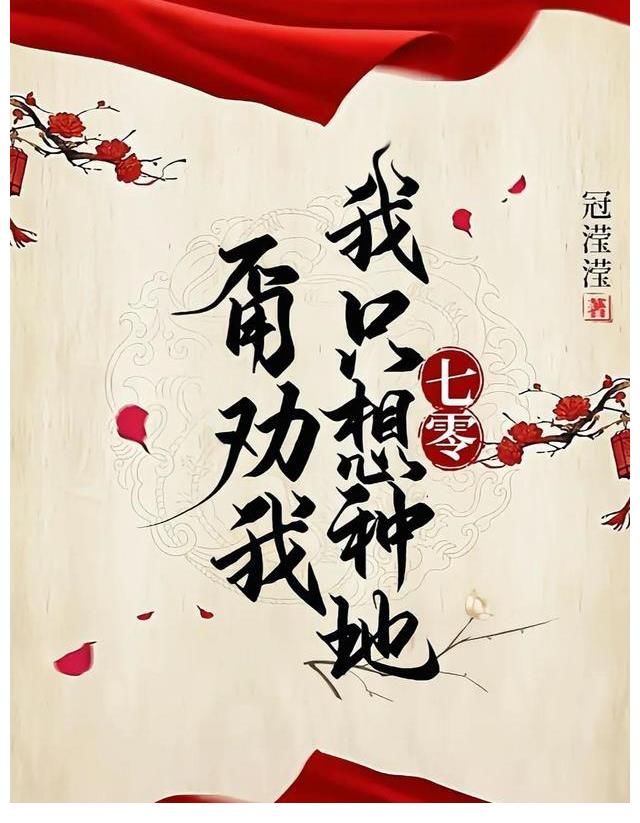 冠滢滢
著
七零
我只想种地
甭劝我